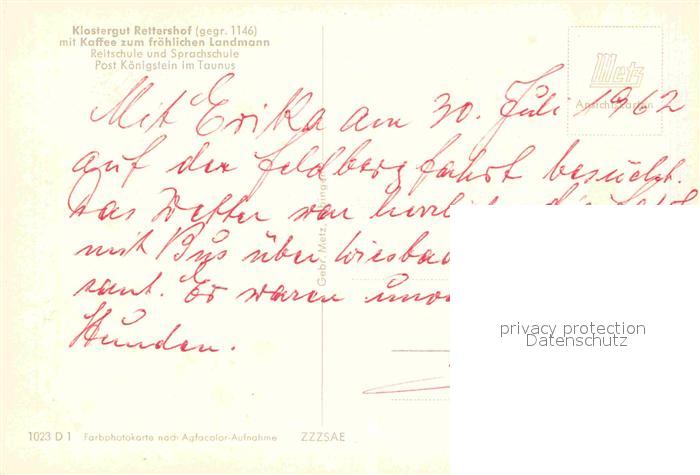 Klostergut Rettershof (gegr. 1146)
mit Kaffee zum fröhlichen Landmann
Reitschule und Sprachschule
Post Königstein im Taunus
Metz
Ansichtskarten
Mit Erika am 30. Juli 1962
auf der Feldbergfahrt besucht.
Das Wetter war
mit Bus über Wiesba
sant. Es waren
Stunden.
Gebr. Metz,
privacy protection
Datenschutz
1023 D 1 Farbphotokarte nach Agfacolor-Aufnahme ZZZSAE